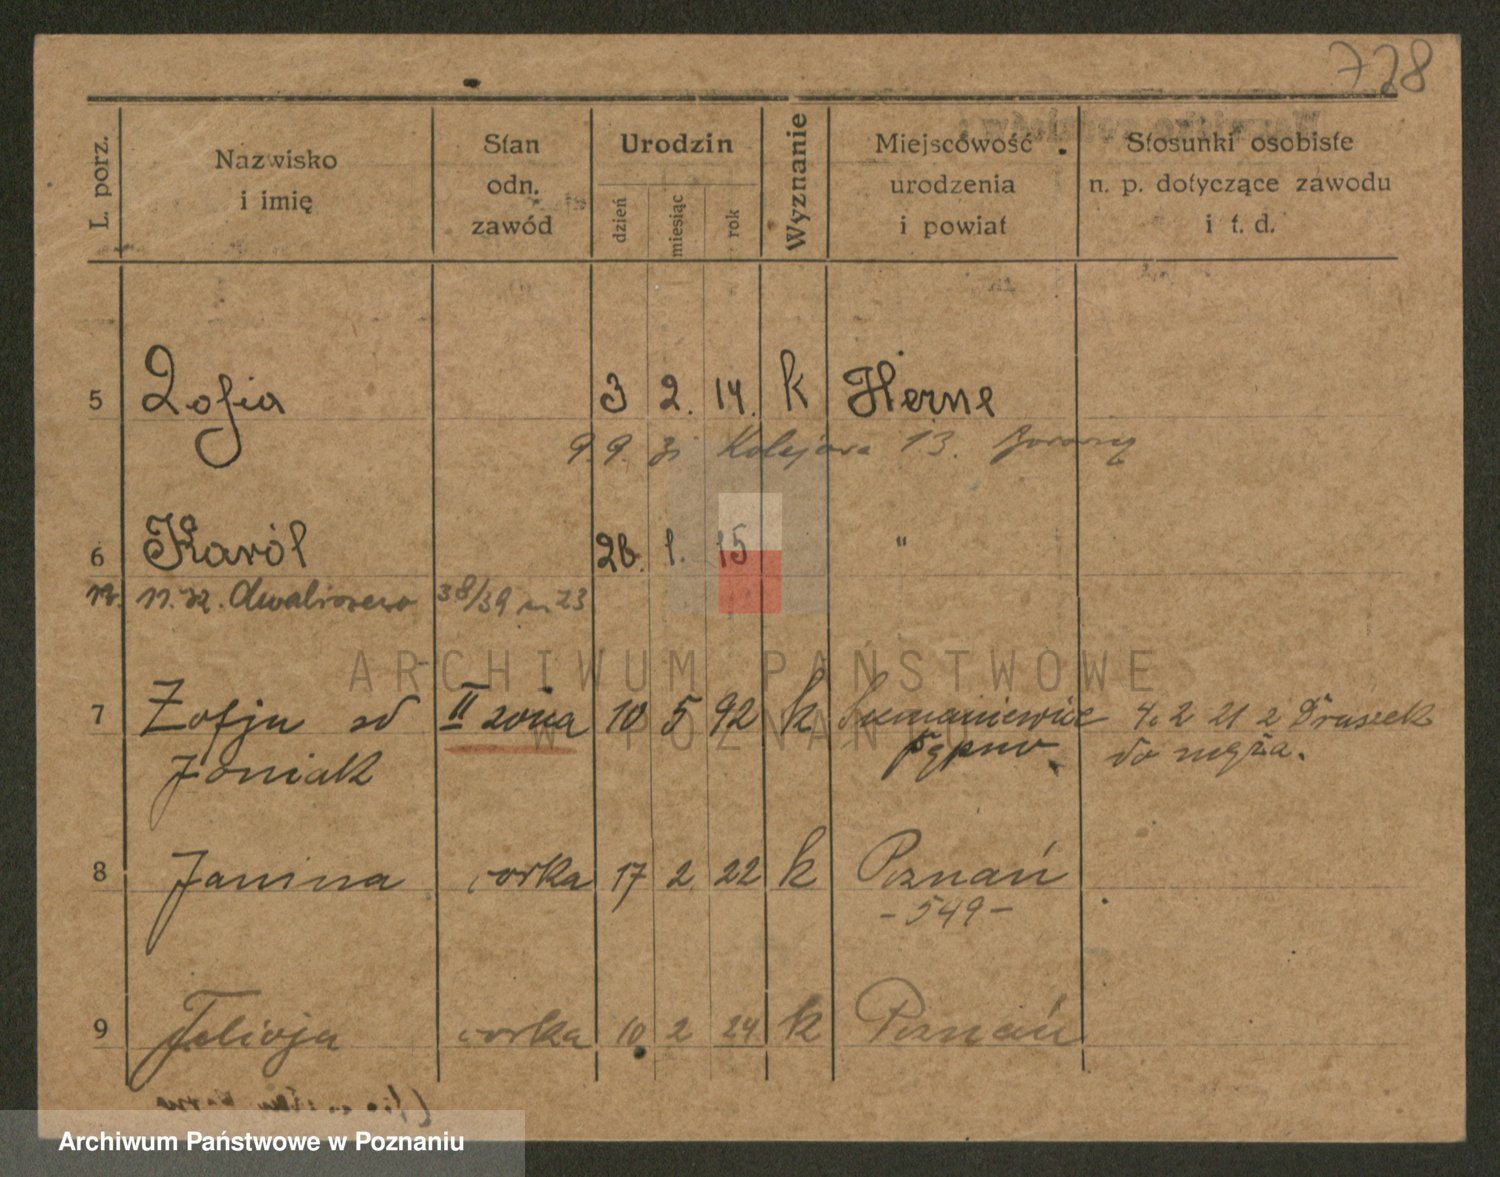 728
L. porz.
Nazwisko
i imię
Stan
odn.
zawód
Urodzin
dzień
miesiąc
rok
Wyznanie
Miejscowość
urodzenia
i powiat
Stosunki osobiste
n. p. dotyczące zawodu
i t. d.
5 Zofia 3 2. 14. k Herne
9. 9. 31 Kolejowa 13.
6 Karól 28. 1. 15 "
11. 32. 38/39 m 23
ARCHIWUM PAŃSTWOWE
W POZNANIU
7 Zofja zd II żona 10 5 92 k 4. 2 21 z
Joniak do męża.
8 Janina córka 17 2 22 k Poznań
- 549 -
9 Felicja córka 10 2 24 k Poznań
Archiwum Państwowe w Poznaniu